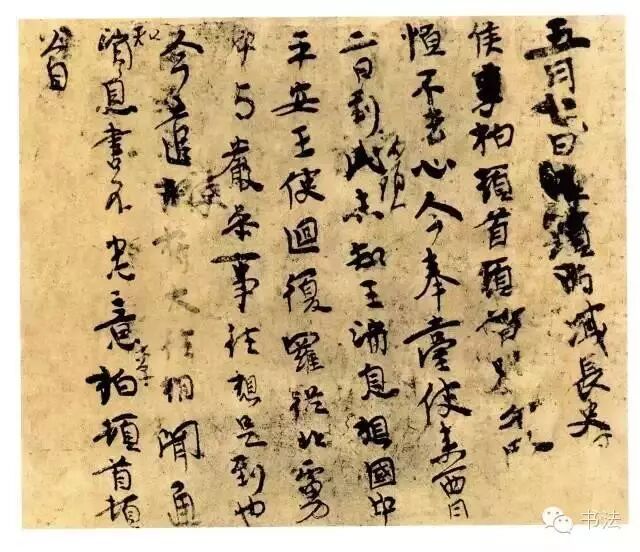 五月七日 西域長史
侯李柏頓首頓首别
恒不去心今奉臺使來西月
二日到此未知王消息想國中
平安王使迴復羅從北虜
中与嚴參事往想是到也
今遣使符太往相聞通
知消息書不悉意李柏頓首頓
首
书法